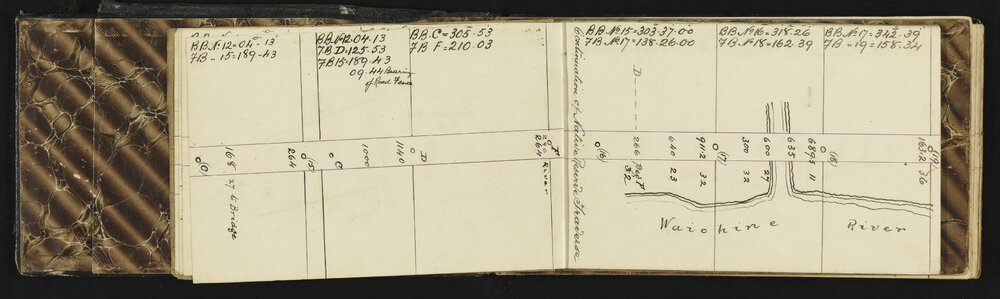 B.B. № 12 = 04.13
7B .. 15 = 189.43
B.B. № 12.04.13
7B. D. 125.53
7B 15 = 189.43
09.44 Bearing
of Road Fence
B.B. C = 305.53
7B F = 210.03
B.B. № 15 = 303.37.00
7B. № 17 = 138.26.00
B.B. № 16 = 318.26
7B. № 18 = 162.39
B.B. № 17 = 342.39
7B. .. 19 = 158.34
168
27 to Bridge
264
(15)
C
1000
1140
D
264
River
F
Continuation of Native Reserve Traverse
(16)
D
266
Peg F
32
640
23
911.2
32
(17)
300
32
600
27
635
689.5
11
(18)
1631.2
36
(19)
Waiohine River